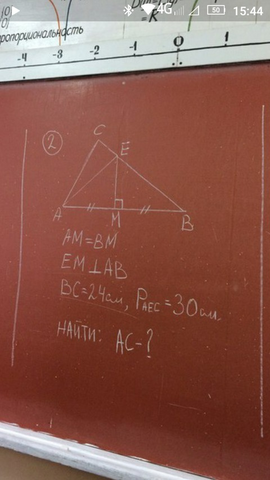 15:44
4G
50
ПРОПОРЦИОНАЛЬНОСТЬ
-4 -3 -2 -1 0 1
2
C
E
A M B
AM=BM
EM⊥AB
BC=24см, P_AEC=30см.
НАЙТИ: AC-?